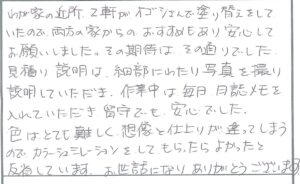 わが家の近所、2軒がイゴシさんで塗り替えをして
いたので、両方の家からのおすすめもあり安心して
お願いしました。その期待は、その通りでした。
見積り説明は、細部にわたり写真を撮り
説明していただき、作業中は毎日日誌メモを
入れていただき留守でも、安心でした。
色はとても難しく、想像と仕上りが違ってしまう
のでカラーシュミレーションをしてもらったらよかったと
反省しています。お世話になりありがとうございます